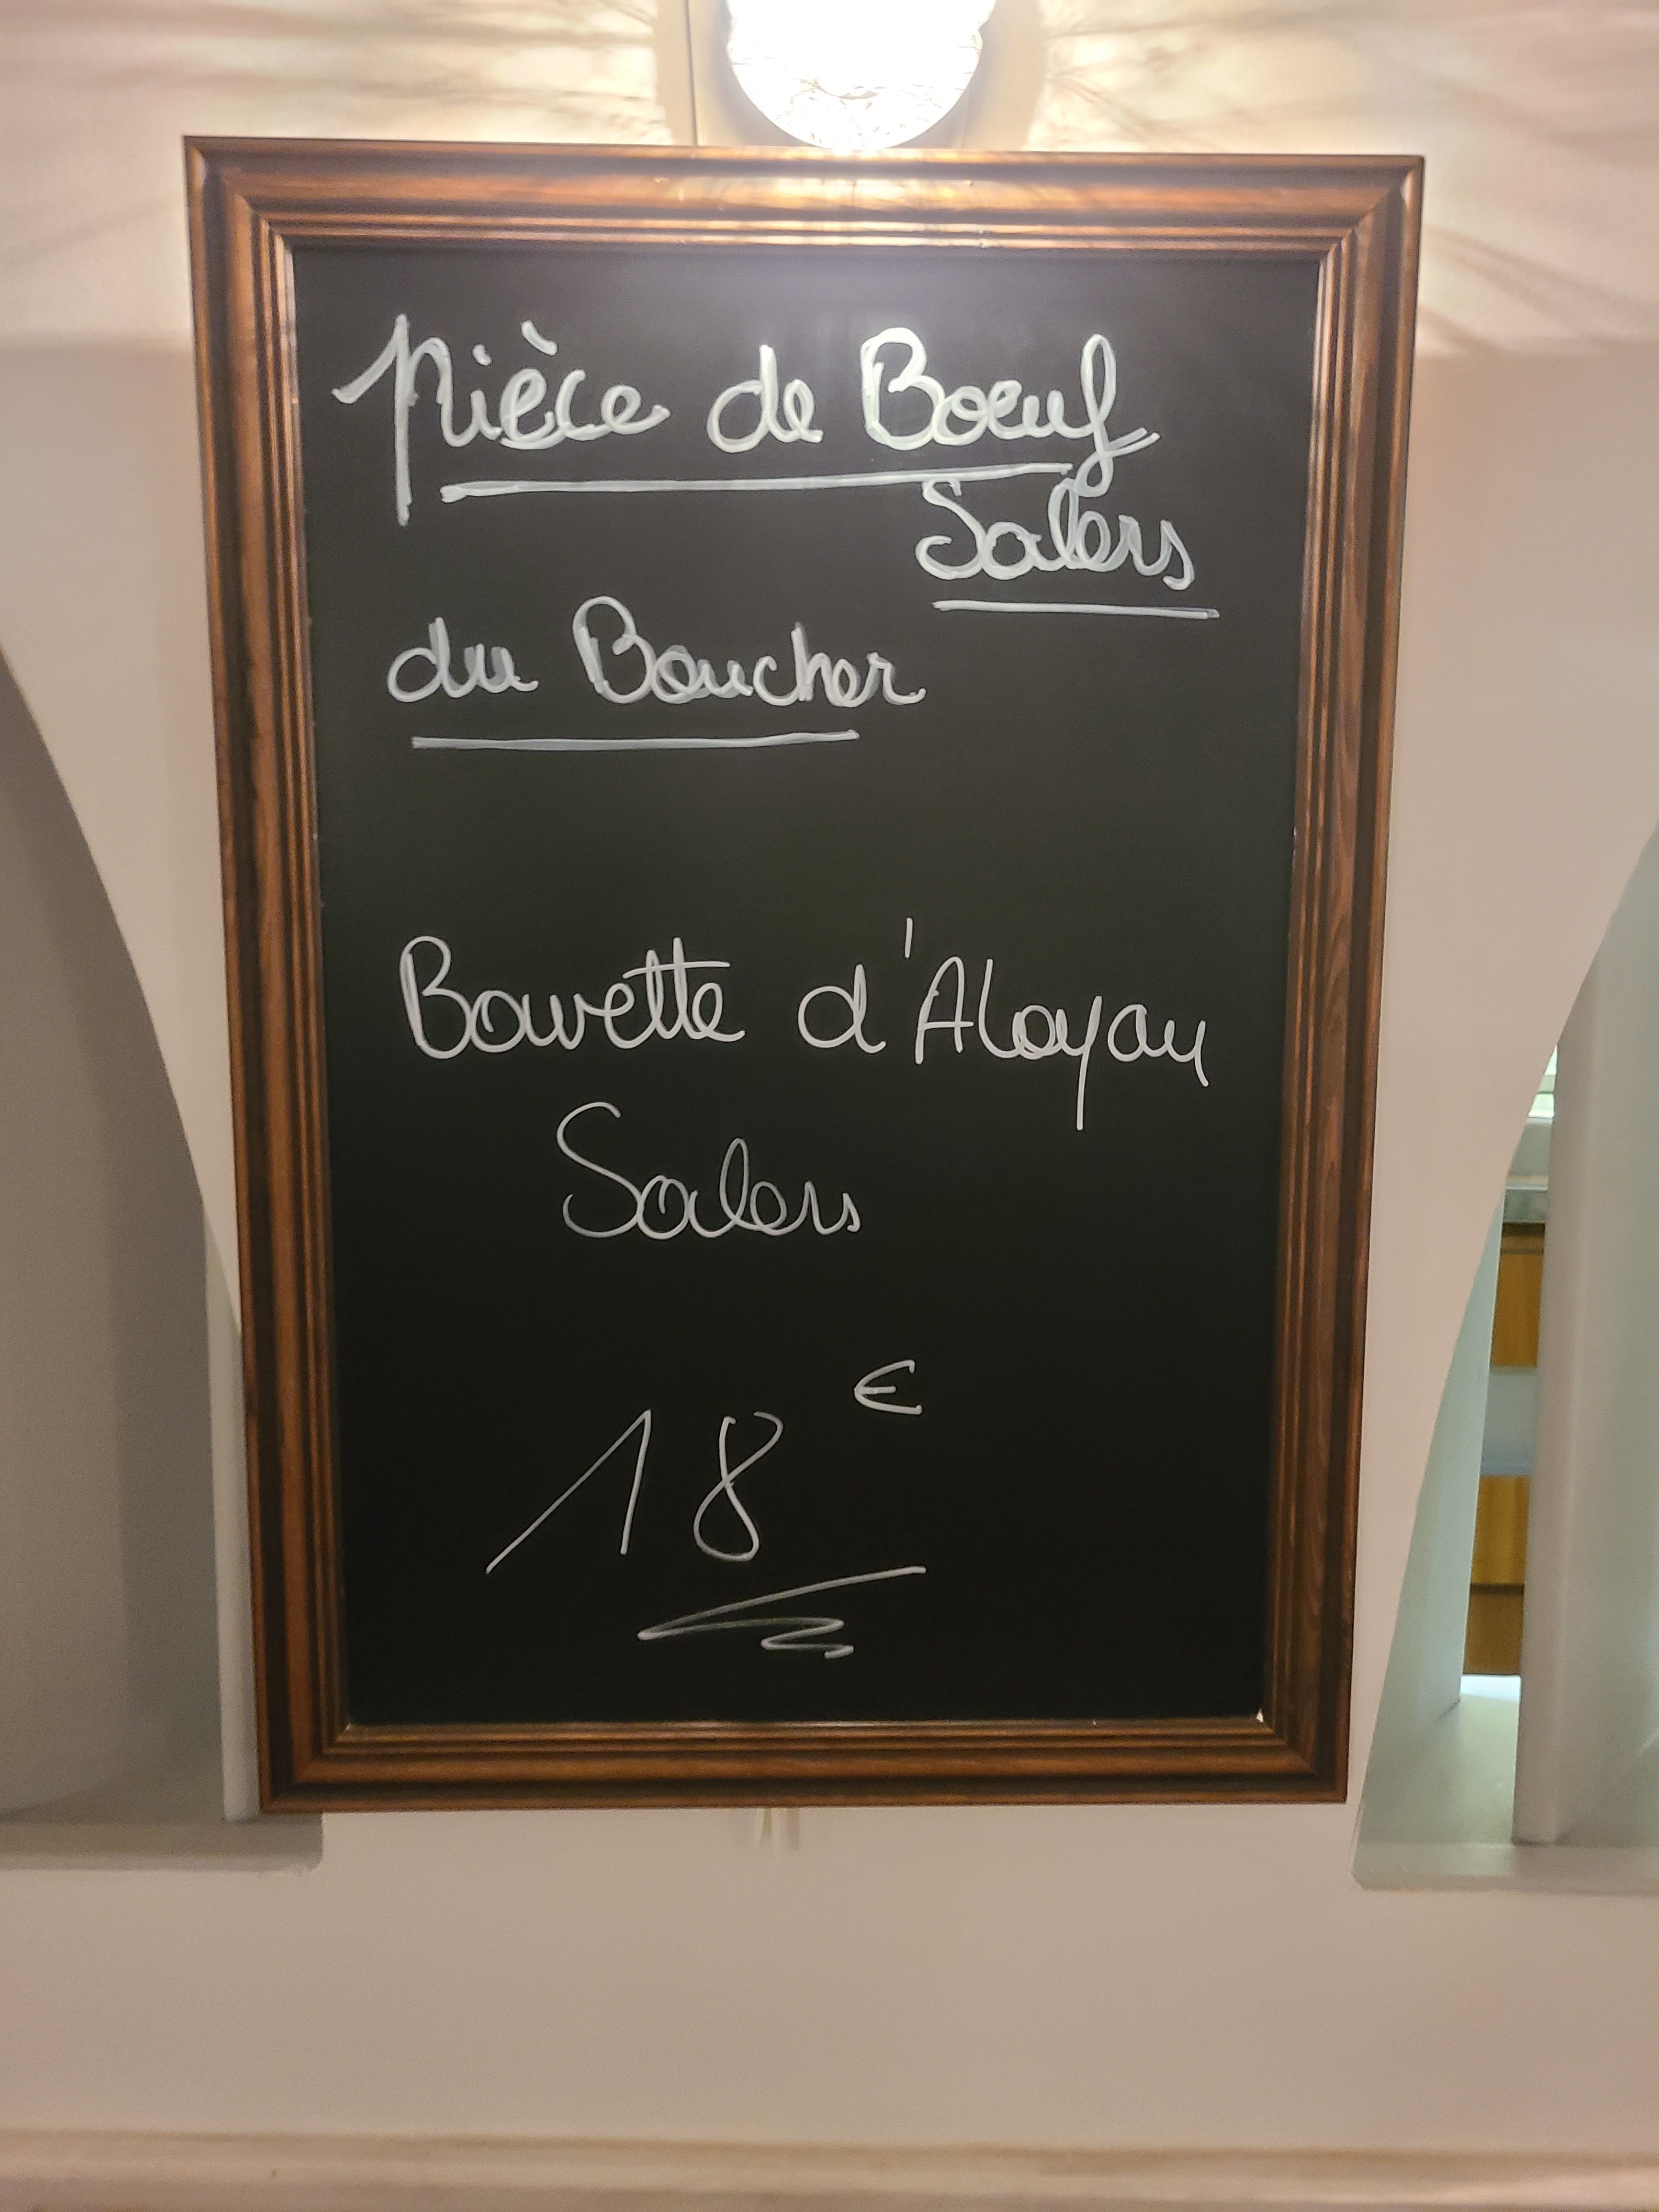 pièce de Boeuf
Salers
du Boucher
Bavette d'Aloyau
Salers
18 €